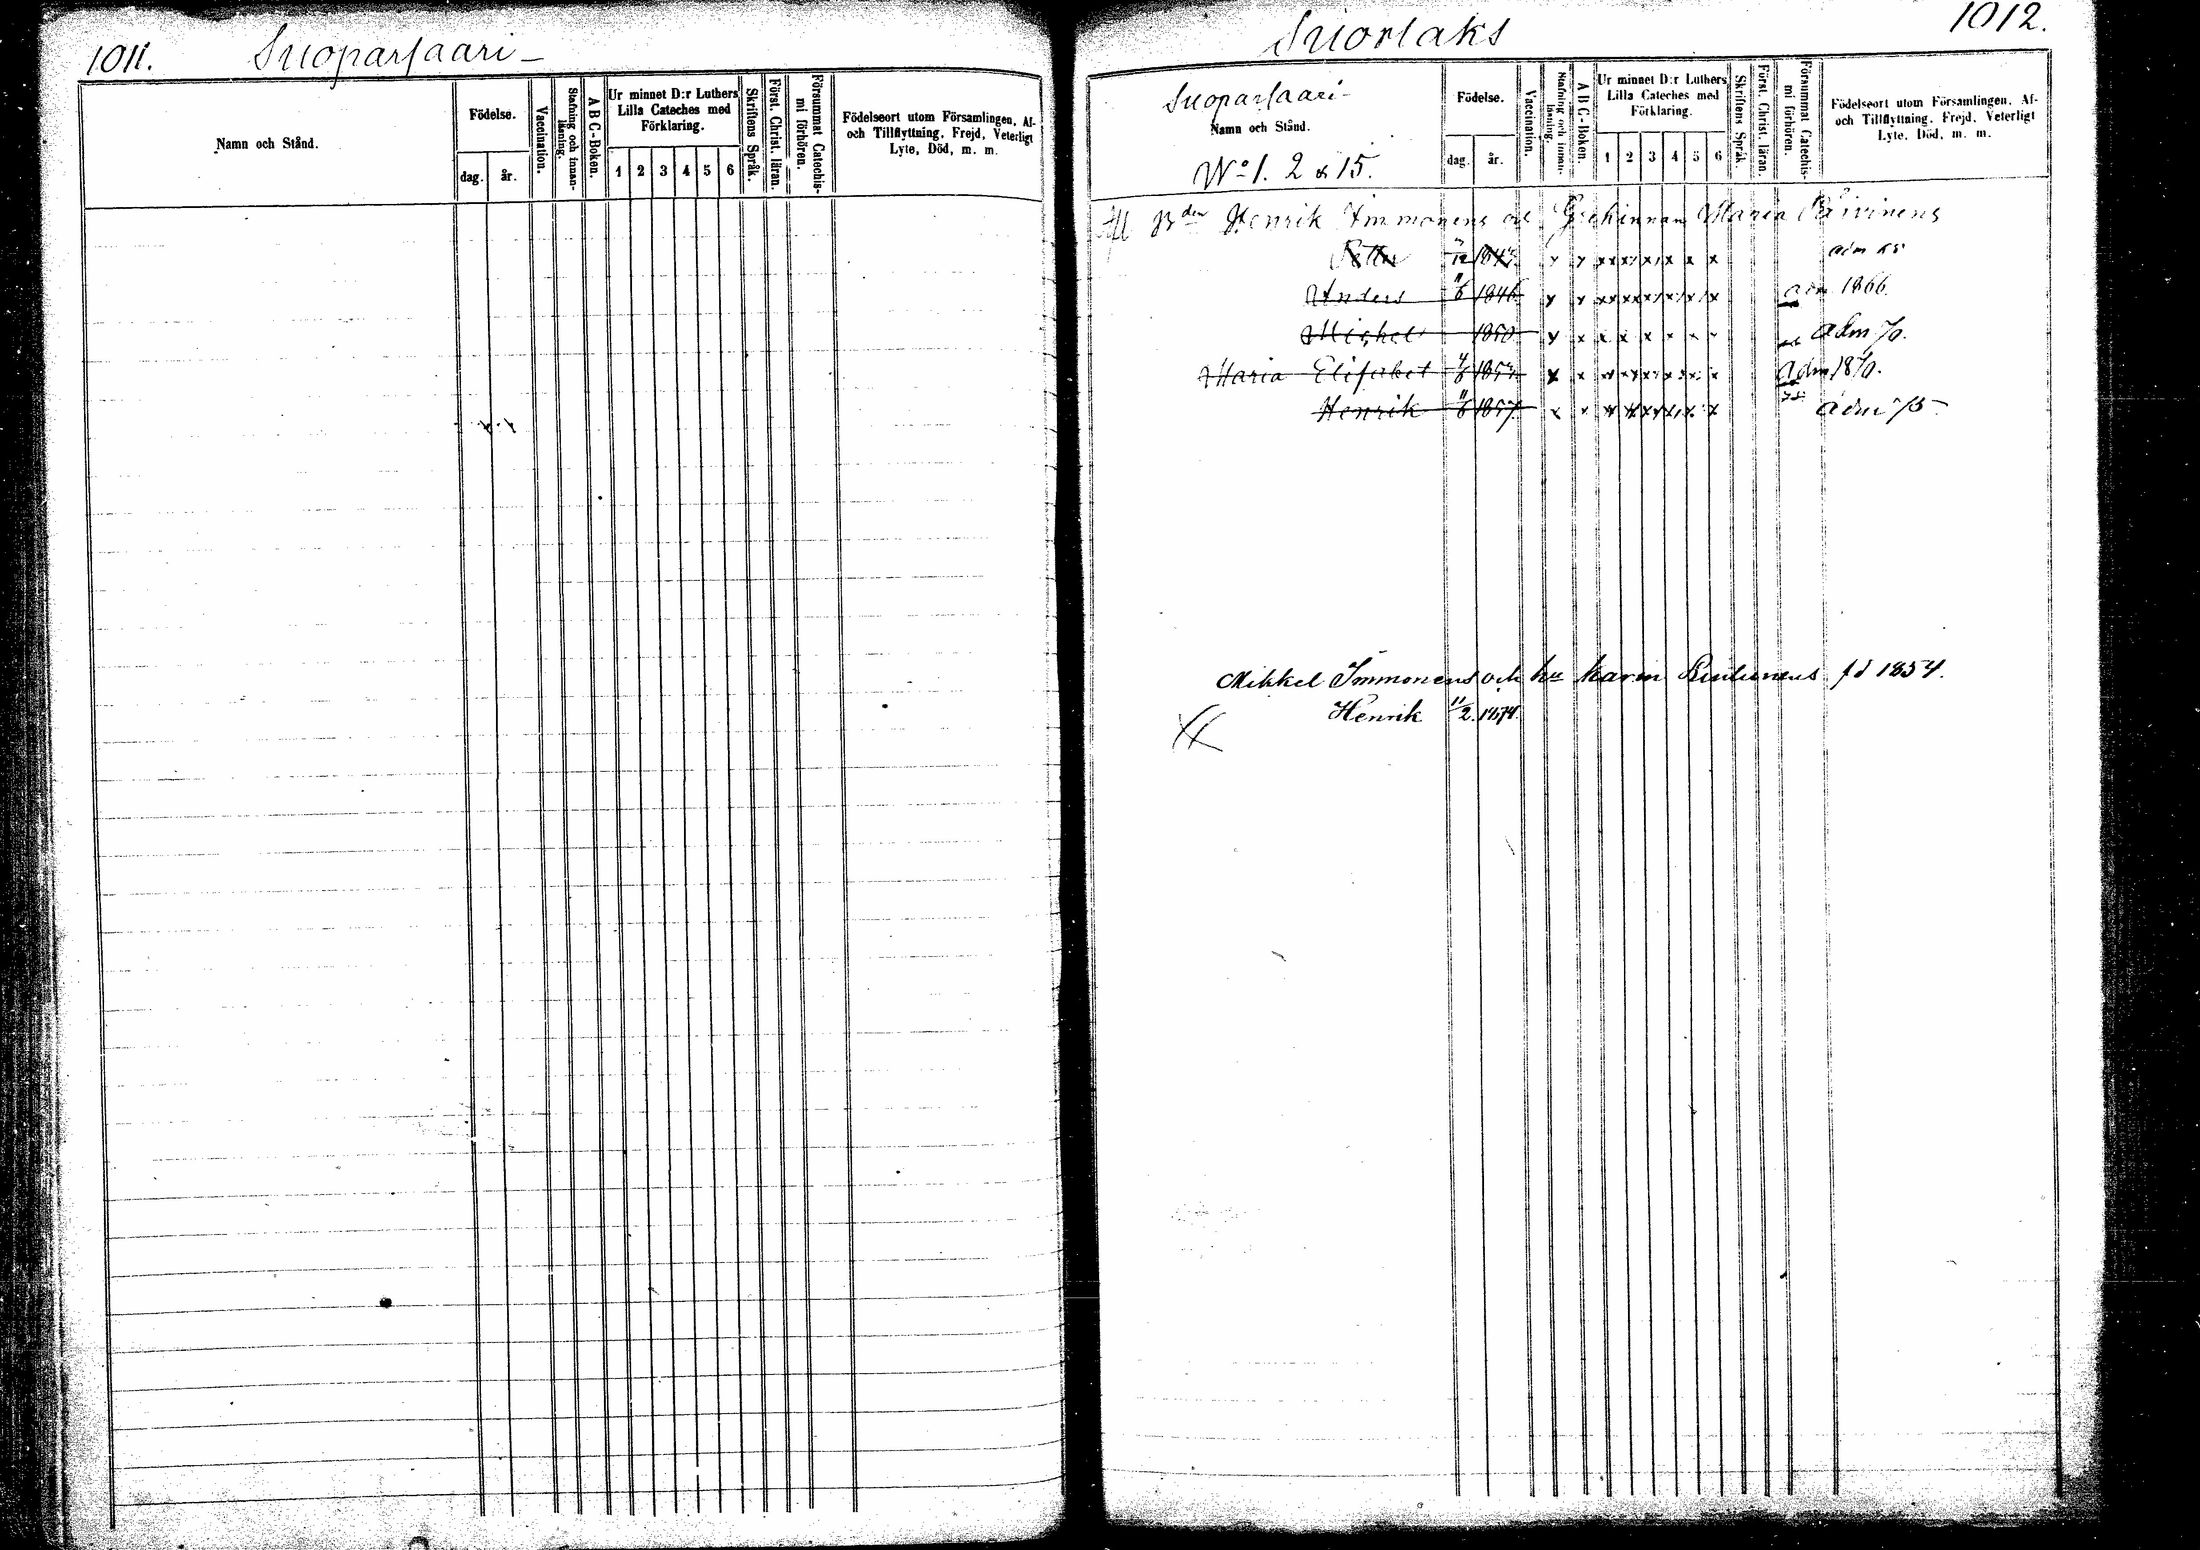 1011. Suoparsaari
Namn och Stånd.
Födelse.
dag. år.
Vaccination.
Stafning och innan-läsning.
A B C-Boken.
Ur minnet D:r Luthers
Lilla Cateches med
Förklaring.
1 2 3 4 5 6
Skriftens Språk.
Först. Christ. läran.
Försummat Catechis-
mi förhören.
Födelseort utom Församlingen, Af-
och Tillflyttning, Frejd, Veterligt
Lyte, Död, m. m.
Suorlaks 1012.
Suoparsaari
Namn och Stånd.
No 1. 2 & 15.
Födelse.
dag. år.
Vaccination.
Stafning och innan-
läsning.
A B C-Boken.
Ur minnet D:r Luthers
Lilla Cateches med
Förklaring.
1 2 3 4 5 6
Skriftens Språk.
Först. Christ. läran.
Försummat Catechis-
mi förhören.
Födelseort utom Församlingen, Af-
och Tillflyttning, Frejd, Veterligt
Lyte, Död, m. m.
Bden Henrik Immonens Maria Päivinens
Petter adm 65
Anders 1846 adm 1866.
Michel 1850 adm 70.
Maria Elisabet adm 1870.
Henrik 1857 adm 75
Mikkel Immonens och hu Karin fd 1854.
Henrik 11/2. 1874.